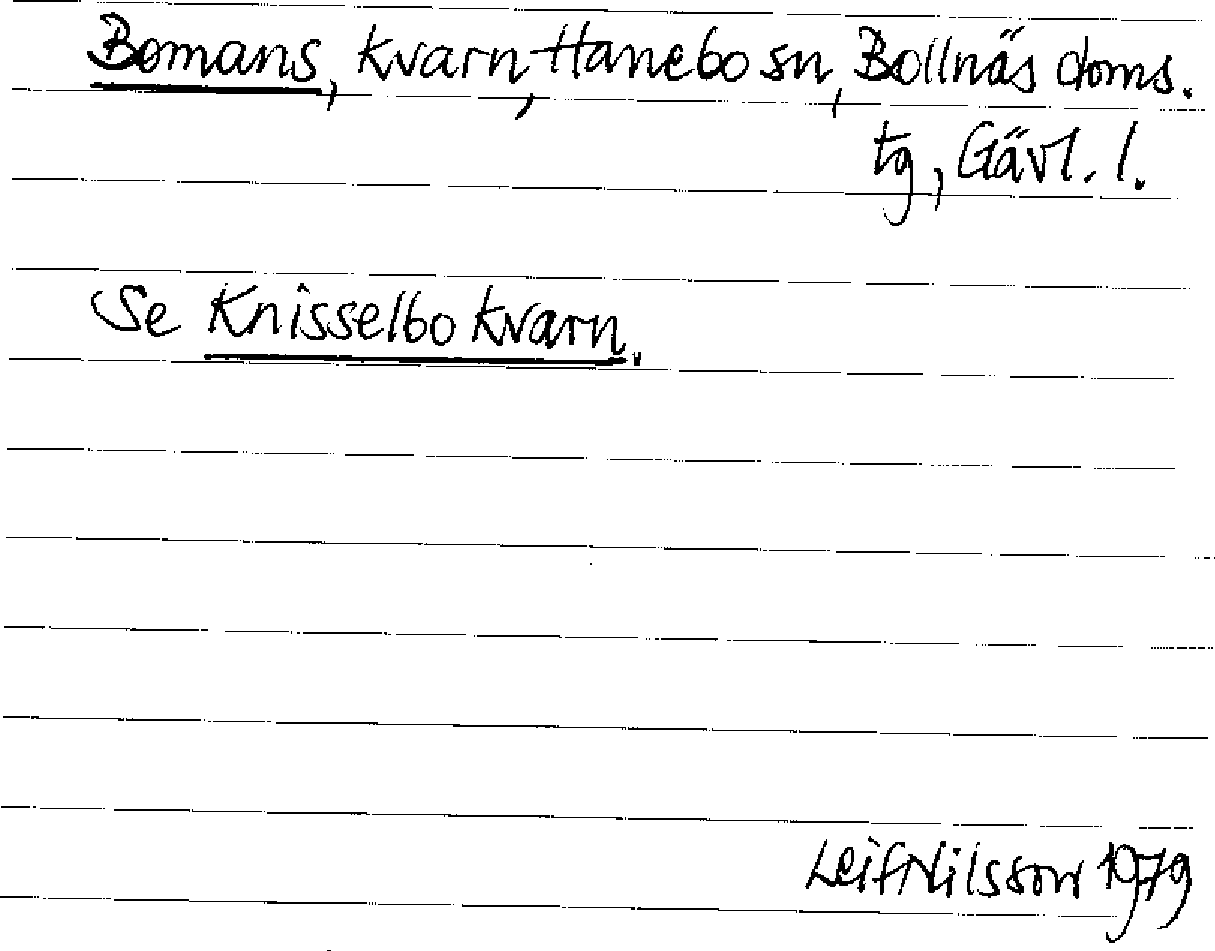 Bomans, kvarn, Hanebo sn, Bollnäs doms.
tg, Gävl. l.
Se Knisselbo kvarn.
Leif Nilsson 1979